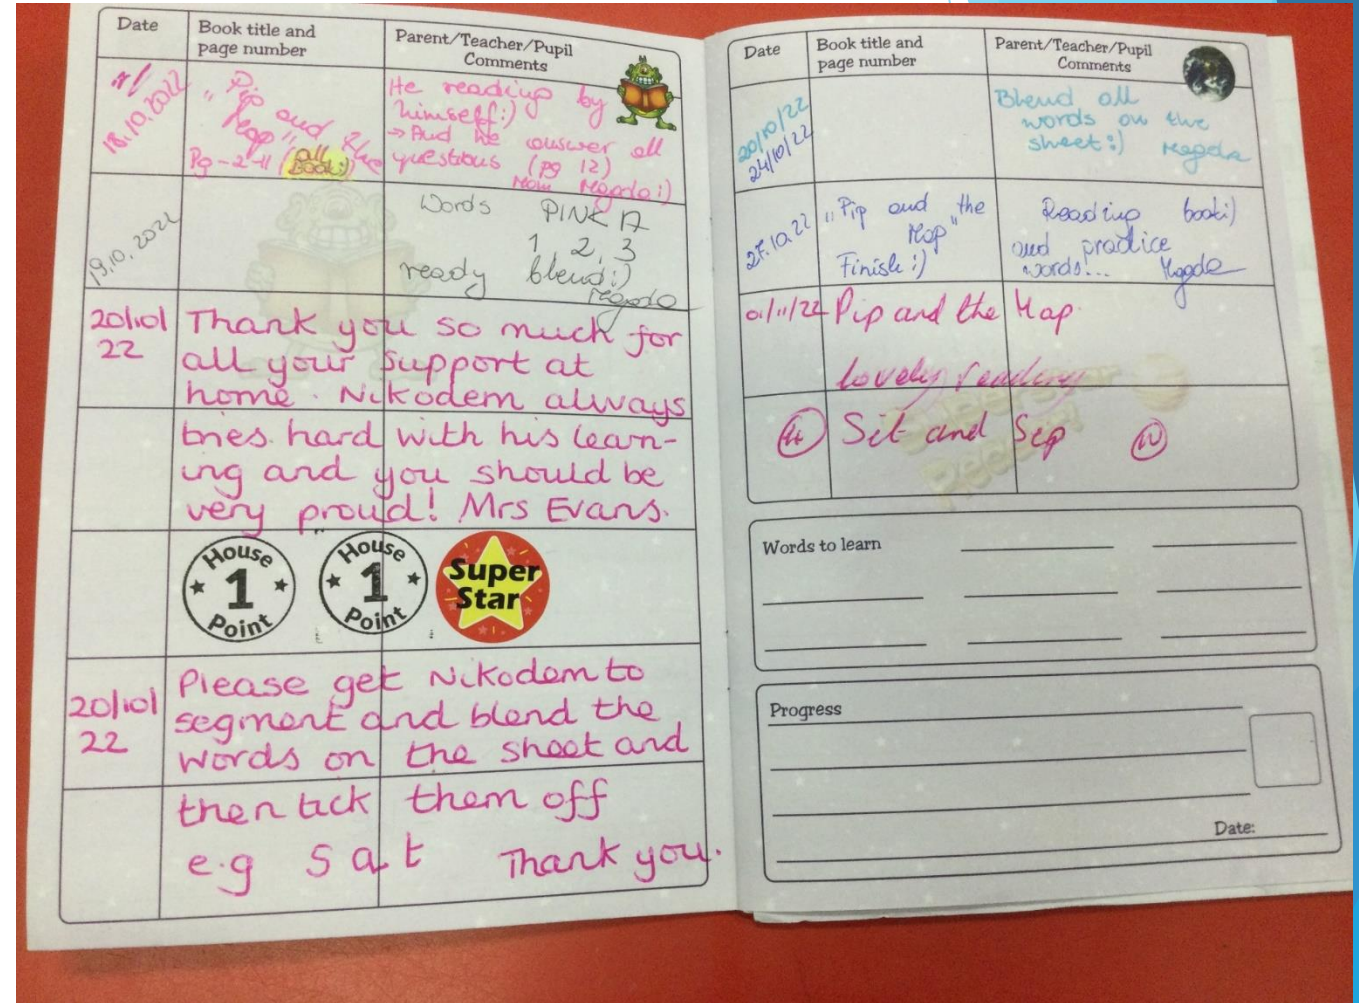 Date
Book title and
page number
Parent/Teacher/Pupil
Comments
18.10.2022
"Pip and the
Map"
Pg-2-11 (all
Book:)
He reading by
himself:)
→ And he answer all
questions (pg 12)
Mom Magda:)
19.10.2022
Words PINK A
1, 2, 3
ready blend:)
Magda
20/10/
22
Thank you so much for
all your support at
home. Nikodem always
tries hard with his learn-
ing and you should be
very proud! Mrs Evans.
House
1
Point
House
1
Point
Super
Star
20/10/
22
Please get Nikodem to
segment and blend the
words on the sheet and
then tick them off
e.g s a t Thank you.
Date
Book title and
page number
Parent/Teacher/Pupil
Comments
20/10/22
24/10/22
Blend all
words on the
sheet:) Magda
27.10.22
"Pip and the
Map"
Finish:)
Reading book:)
and practice
words!... Magda
01/11/22
Pip and the Map.
lovely reading
Sit and Sip
Superstar
Reader
Words to learn
Progress
Date: